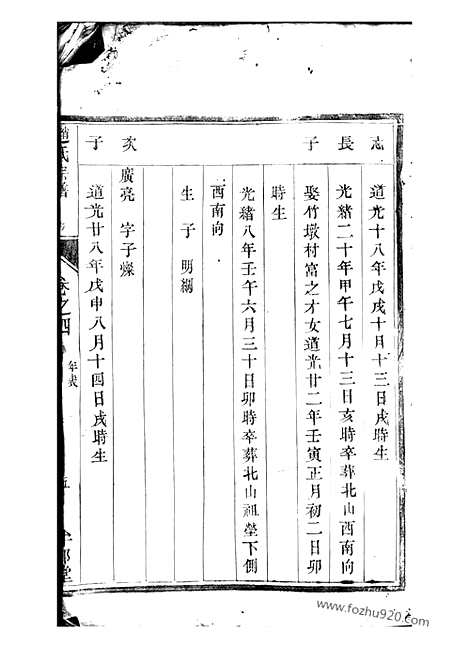 志長子
道光十八年戊戌十月十三日戌時生
光緒二十年甲午七月十三日亥時卒葬北山西南向
娶竹墩村富之才女道光廿二年壬寅正月初二日卯
時生
光緒八年壬午六月三十日卯時卒葬北山祖塋下側
酉南向
生子明綱
次子
廣亮 字子燦
道光廿八年戊申八月十四日戌時生
氏宗譜
卷之四
年表
五
堂
www.fozhu920.com